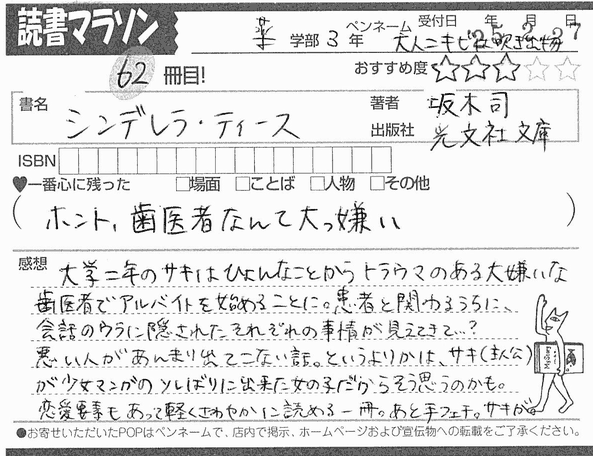 読書マラソン
薬 学部 3 年 ペンネーム 大人ニキビは吹き出物 受付日 25年2月27日
62冊目! おすすめ度 ☆☆☆☆☆
書名 シンデレラ・ティース 著者 坂木司
出版社 光文社文庫
ISBN
♥一番心に残った □場面 □ことば □人物 □その他
(ホント、歯医者なんて大っ嫌い)
感想 大学二年のサキはひょんなことからトラウマのある大嫌いな
歯医者でアルバイトを始めることに。患者と関わるうちに、
会話のウラに隠されたそれぞれの事情が見えてきて…?
悪い人があんまり出てこない話。というよりかは、サキ(主人公)
が少女マンガのソレばりに出来た女の子だからそう思うのかも。
恋愛要素もあって軽くさわやかに読める一冊。あと手フェチ。サキが。
●お寄せいただいたPOPはペンネームで、店内で掲示、ホームページおよび宣伝物への転載をご了承ください。